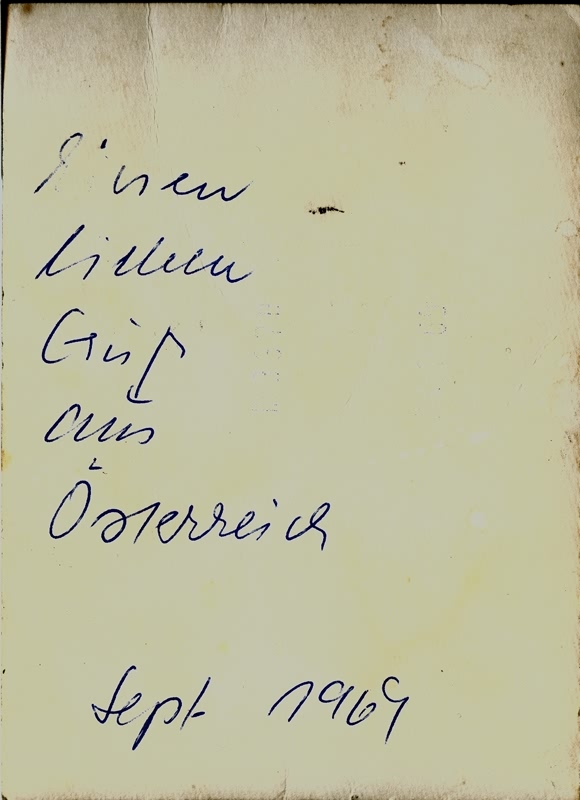 Einen
lieben
Gruß
aus
Österreich
Sept 1969